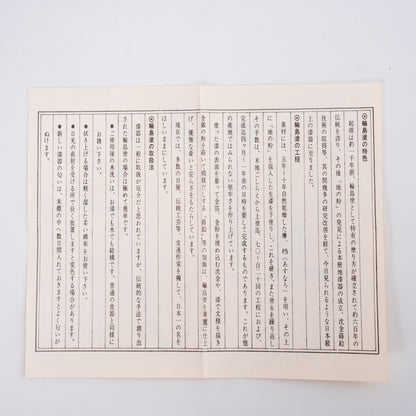 ◎輪島塗の特色
起源は約一千年前、輪島塗として特有の塗り方が確立されて約六百年の
伝統を誇り、その後、「地の粉」の発見による本堅地漆器の成立、沈金蒔絵
技術の収得等、其の間幾多の研究改善を経て、今日見られるような日本最
上の漆器に至りました。
◎輪島塗の工程
素材には、五年〜十年自然乾燥した欅、档(あすなろ)を用い、その上
に「地の粉」を混入した生漆を下塗りし、これを研ぎ、また塗るを繰り返し
その手数は、木地ごしらえから上塗迄、七〇〜百二十回の工程におよび、
完成迄四ヶ月〜一年余の日時を要して完成するものであります。これが他
の産地ではみられない堅牢さを作り上げています。
使った漆の表面を彫って金箔、金粉を埋め込む沈金や、漆で文様を描き
金銀の粉を蒔いて模様だしする「蒔絵」等の加飾は、輪島塗を華麗に仕上
げ、優雅な姿いと安らぎをもたらしています。
現在では、多数の日展、伝統工芸等、常連作家を擁して、日本一の名を
ほしいままにしています。
◎輪島塗の取扱法
漆器は一般に取扱が厄介だと思われていますが、伝統的な手法で創り出
された輪島塗の場合は極めて簡単です。
●ご使用後の水洗いは、お湯でも水でも結構です。普通の食器と同様に
お扱い下さい。
●拭き上げる場合は軽く湿した柔い綿布をお使い下さい。
●日光の直射を受ける所で長く放置しますと変色する場合があります。
●新しい漆器の匂いは、米櫃の中へ数日間入れておきますとよく匂いが
ぬけます。